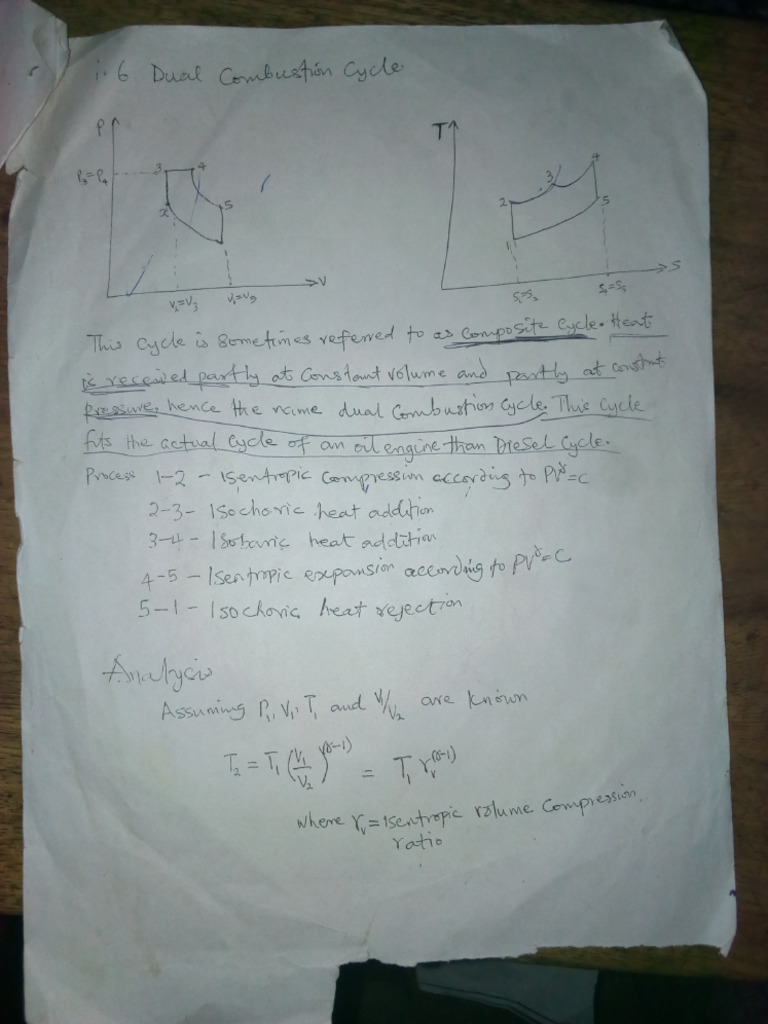 1.6 Dual Combustion Cycle
P
P₃=P₄
3
4
2
5
V
V₂=V₃
T
3
4
2
5
1
S
S₁=S₂
S₄=S₅
This Cycle is Sometimes referred to as Composite Cycle. Heat
is received partly at Constant volume and partly at constant
pressure, hence the name dual Combustion Cycle. This Cycle
fits the actual Cycle of an oil engine than Diesel Cycle.
Process 1-2 - Isentropic Compression according to PV^γ=C
2-3- Isochoric heat addition
3-4- Isobaric heat addition
4-5- Isentropic expansion according to PV^γ=C
5-1- Isochoric heat rejection
Analysis
Assuming P₁, V₁, T₁ and V₁/V₂ are known
T₂ = T₁ (V₁/V₂)^(γ-1) = T₁ r_v^(γ-1)
where r_v = Isentropic volume Compression
ratio